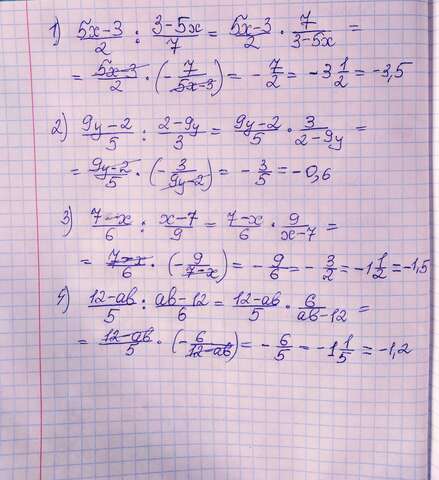 1) (5x-3)/2 : (3-5x)/7 = (5x-3)/2 · 7/(3-5x) =
= (5x-3)/2 · (-7/(5x-3)) = -7/2 = -3 1/2 = -3,5
2) (9y-2)/5 : (2-9y)/3 = (9y-2)/5 · 3/(2-9y) =
= (9y-2)/5 · (-3/(9y-2)) = -3/5 = -0,6
3) (7-x)/6 : (x-7)/9 = (7-x)/6 · 9/(x-7) =
= (7-x)/6 · (-9/(7-x)) = -9/6 = -3/2 = -1 1/2 = -1,5
4) (12-ab)/5 : (ab-12)/6 = (12-ab)/5 · 6/(ab-12) =
= (12-ab)/5 · (-6/(12-ab)) = -6/5 = -1 1/5 = -1,2